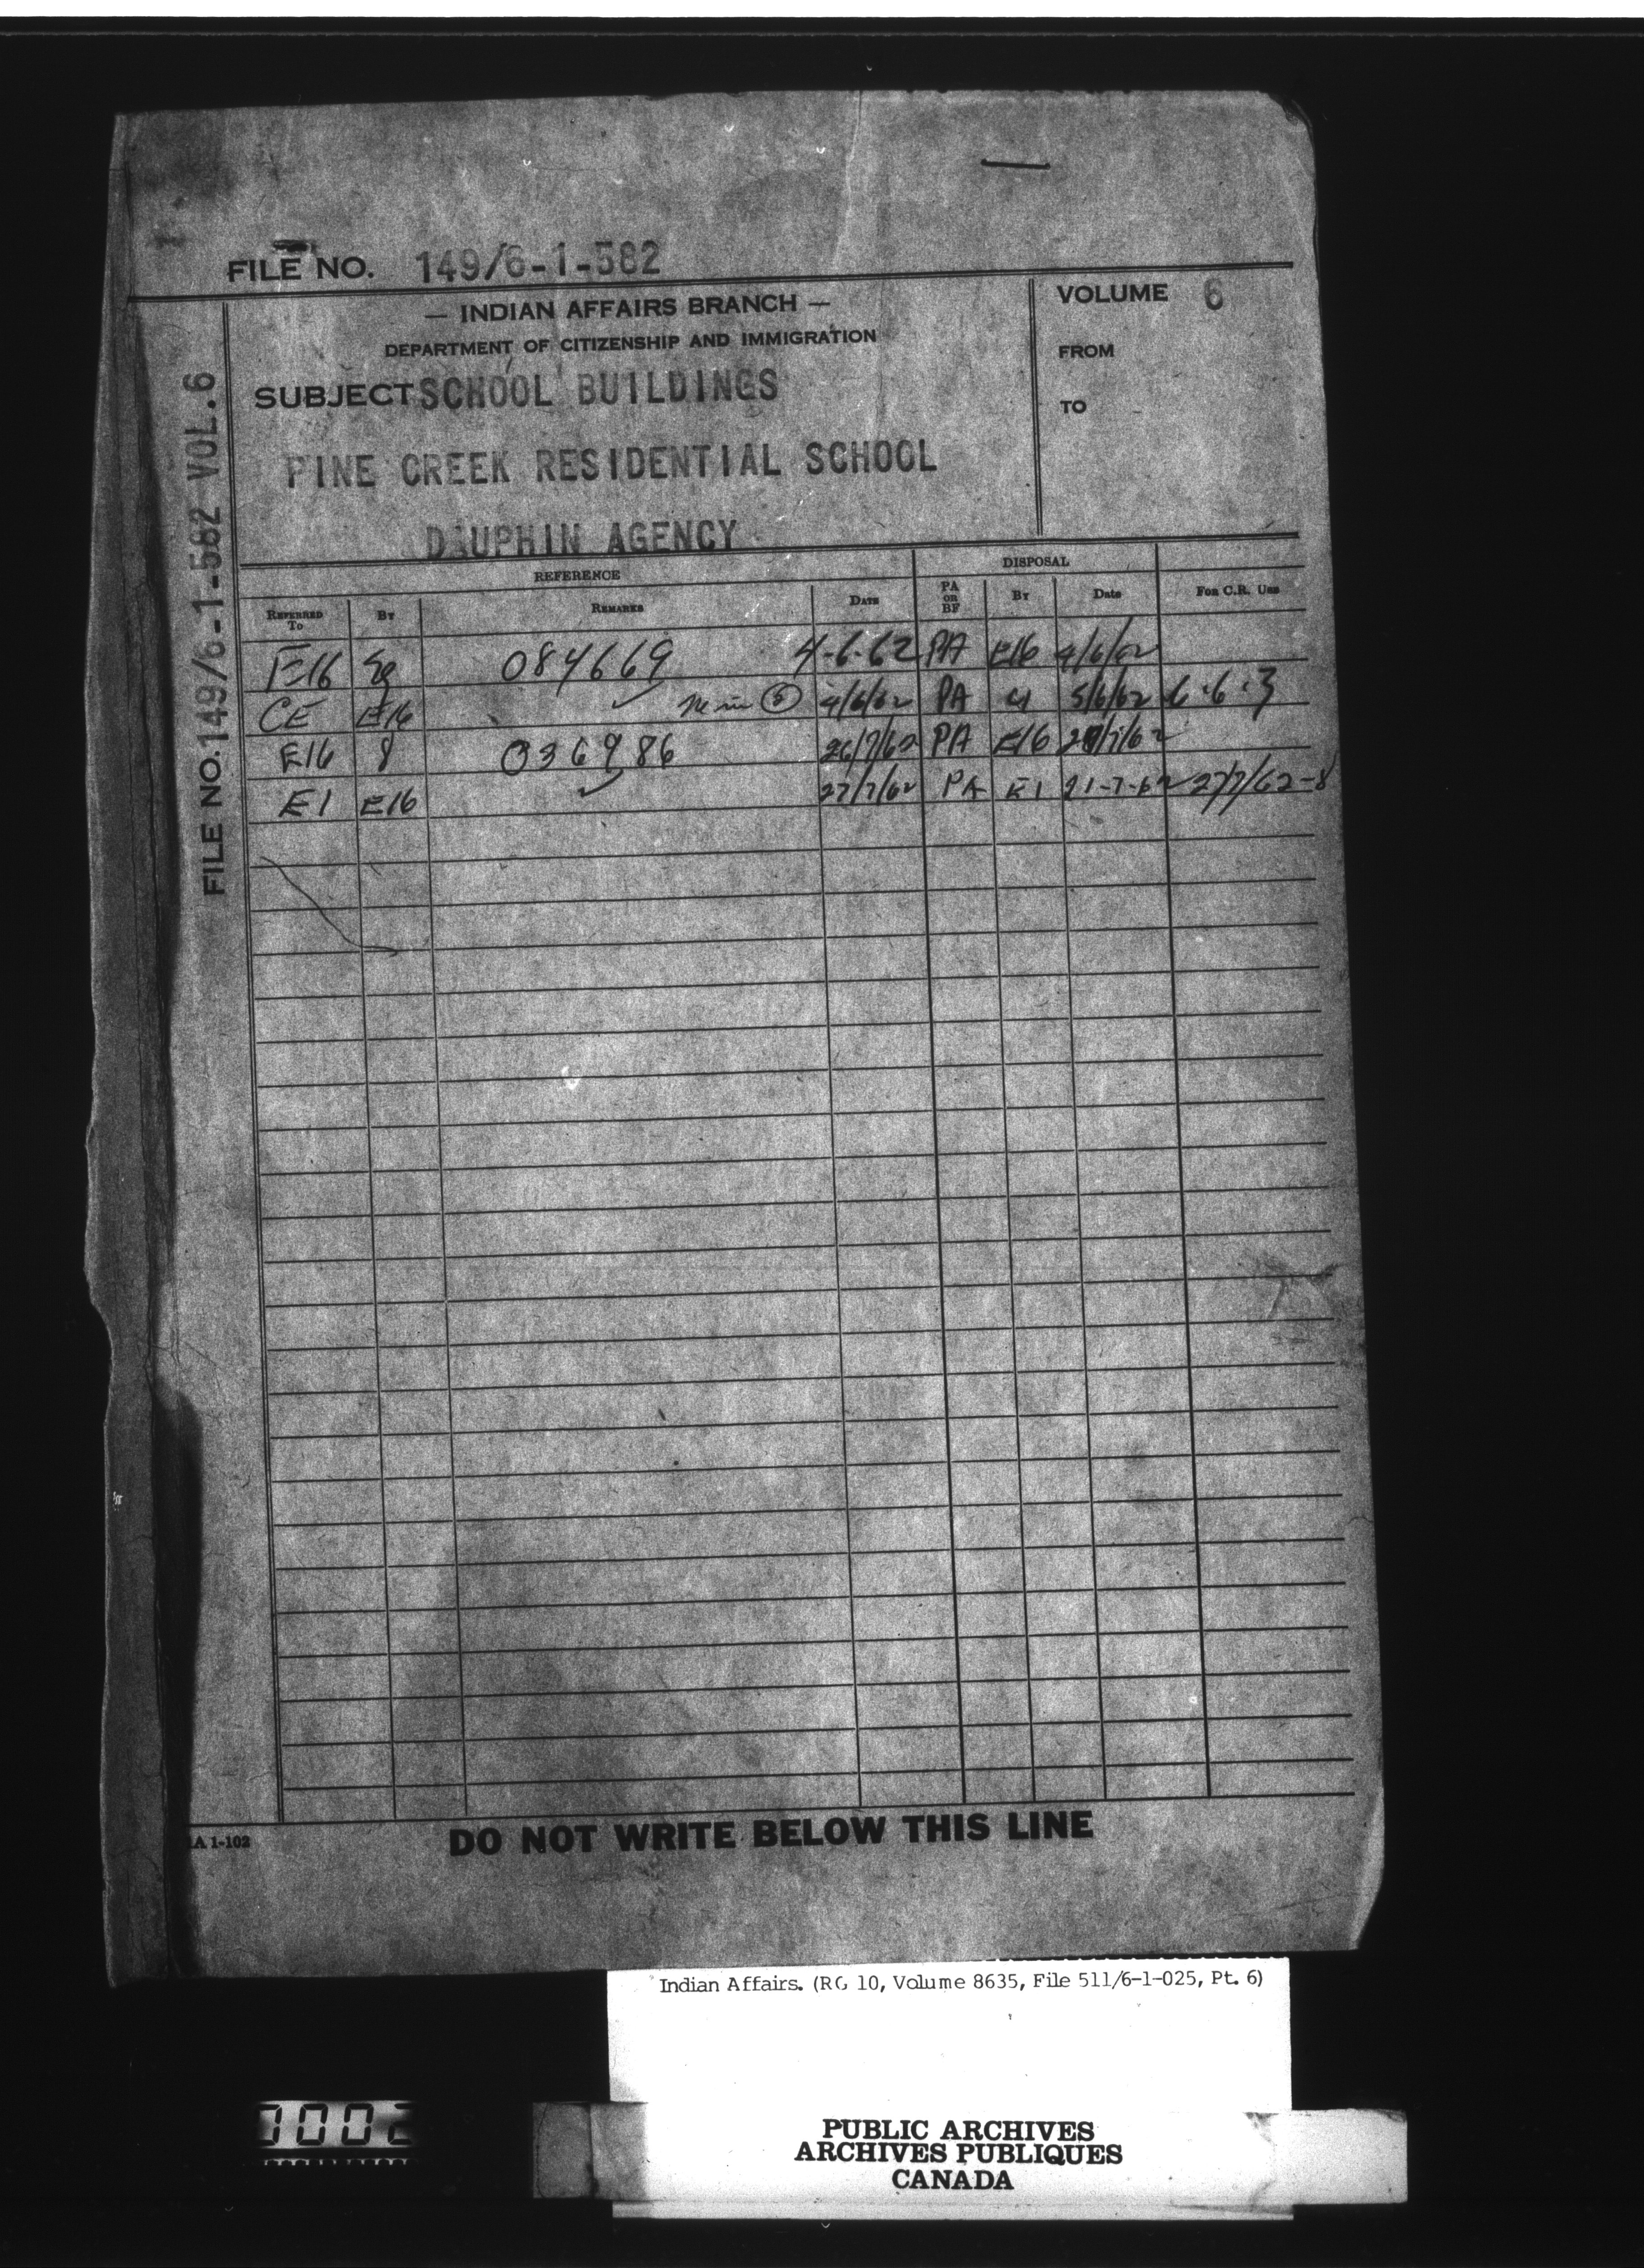 FILE NO. 149/6-1-582
— INDIAN AFFAIRS BRANCH —
DEPARTMENT OF CITIZENSHIP AND IMMIGRATION
SUBJECT SCHOOL BUILDINGS
PINE CREEK RESIDENTIAL SCHOOL
DAUPHIN AGENCY
VOLUME 6
FROM
TO
FILE NO. 149/6-1-582 VOL. 6
REFERENCE DISPOSAL
REFERRED TO BY REMARKS DATE PA OR BF BY Date FOR C.R. USE
E16 084669 4-6-62 PA E16 4/6/62
CE E16 5 4/6/62 PA 5/6/62 6.6.3
E16 8 036986 26/7/62 PA E16
E1 E16 27/7/62 PA E1 27/7/62-8
A 1-102
DO NOT WRITE BELOW THIS LINE
Indian Affairs. (RG 10, Volume 8635, File 511/6-1-025, Pt. 6)
PUBLIC ARCHIVES
ARCHIVES PUBLIQUES
CANADA